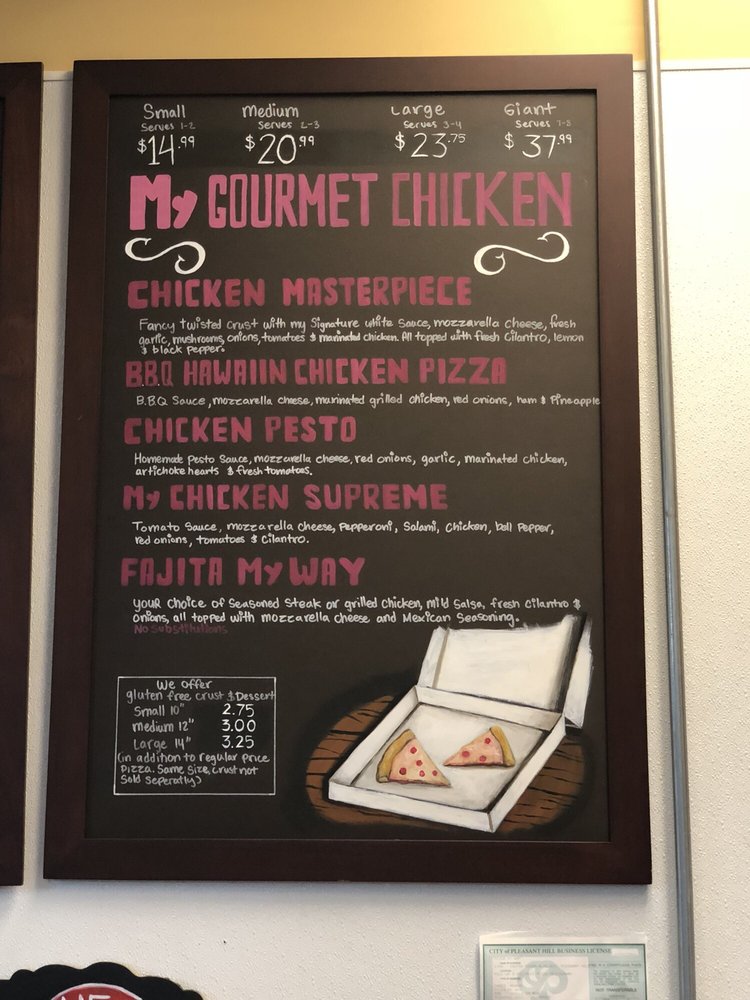 Small Medium Large Giant
Serves 1-2 Serves 2-3 Serves 3-4 Serves 7-8
$14.99 $20.99 $23.75 $37.99
My GOURMET CHICKEN
CHICKEN MASTERPIECE
Fancy twisted crust with my Signature white Sauce, mozzarella cheese, fresh
garlic, mushrooms, onions, tomatoes & marinated chicken. All topped with fresh Cilantro, lemon
& black pepper.
B.B.Q HAWAIIN CHICKEN PIZZA
B.B.Q Sauce, mozzarella cheese, marinated grilled chicken, red onions, ham & Pineapple
CHICKEN PESTO
Homemade Pesto Sauce, mozzarella cheese, red onions, garlic, marinated chicken,
artichoke hearts & fresh tomatoes.
My CHICKEN SUPREME
Tomato Sauce, mozzarella cheese, Pepperoni, Salami, Chicken, bell Pepper,
red onions, tomatoes & Cilantro.
FAJITA My WAY
YOUR Choice of Seasoned Steak or grilled chicken, mild Salsa, fresh Cilantro &
Onions, all topped with mozzarella cheese and Mexican Seasoning.
No Substitutions
We offer
gluten free crust & Dessert
Small 10" 2.75
medium 12" 3.00
Large 14" 3.25
(in addition to regular price
Pizza. Same Size, crust not
Sold Seperatly)
CITY of PLEASANT HILL BUSINESS LICENSE
NOT TRANSFERABLE